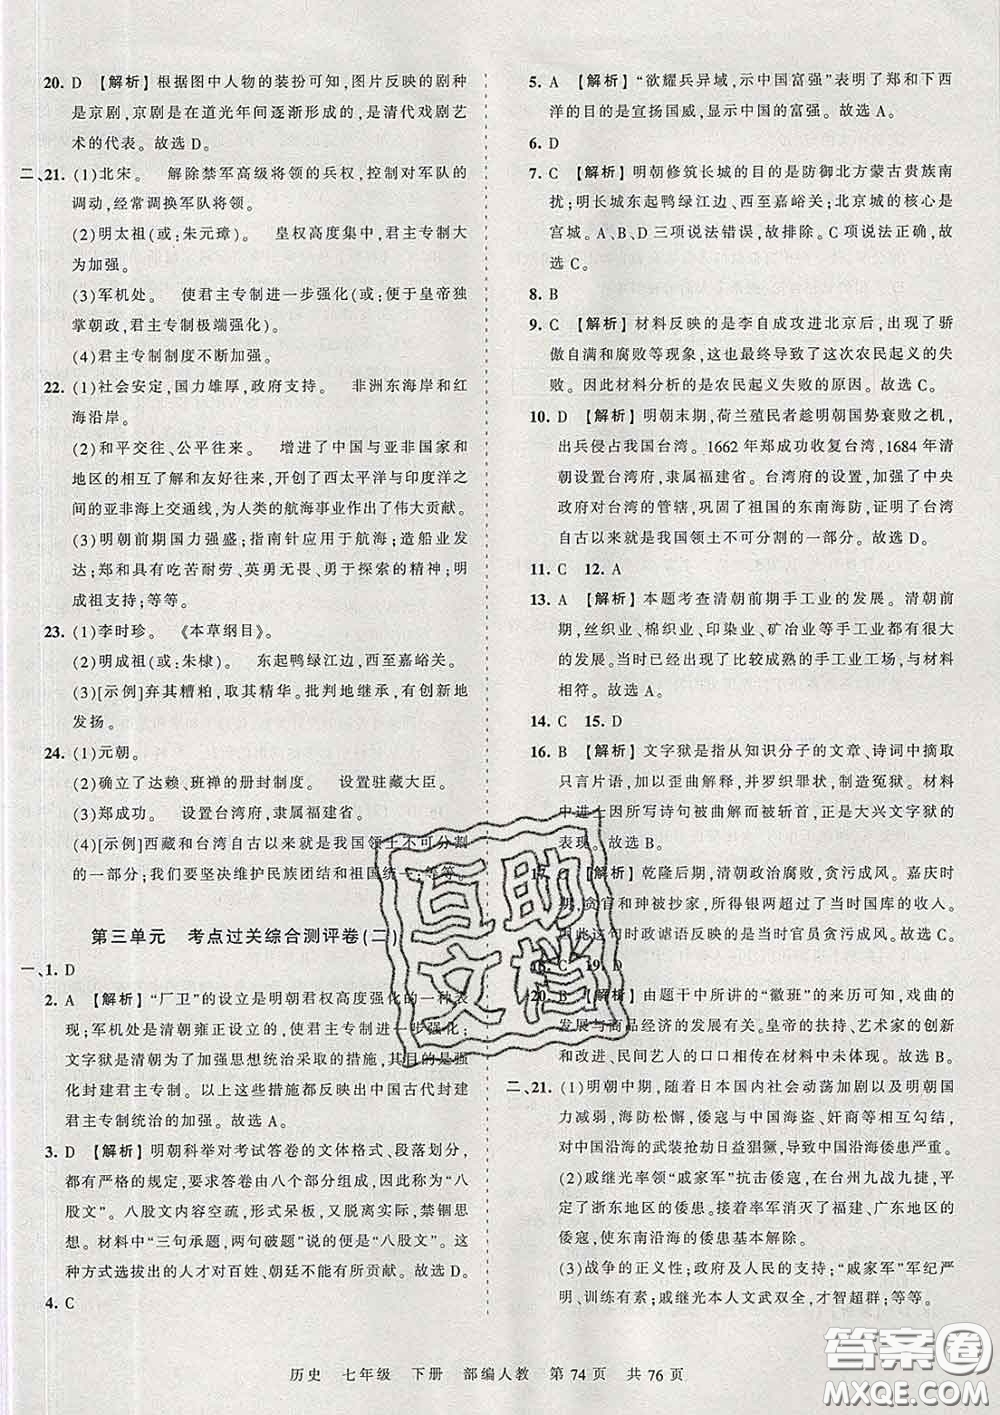 20. D 【解析】根据图中人物的装扮可知,图片反映的剧种
是京剧,京剧是在道光年间逐渐形成的,是清代戏剧艺
术的代表。故选 D。
二、21. (1)北宋。 解除禁军高级将领的兵权,控制对军队的
调动,经常调换军队将领。
(2)明太祖(或:朱元璋)。 皇权高度集中,君主专制大
为加强。
(3)军机处。 使君主专制进一步强化(或:便于皇帝独
掌朝政,君主专制极端强化)。
(4)君主专制制度不断加强。
22. (1)社会安定,国力雄厚,政府支持。 非洲东海岸和红
海沿岸。
(2)和平交往、公平往来。 增进了中国与亚非国家和
地区的相互了解和友好往来。开创了西太平洋与印度洋
的亚非海上交通线,为人类的航海事业作出了伟大贡献。
(3)明朝前期国力强盛;指南针应用于航海;造船业发
达;郑和具有吃苦耐劳、英勇无畏、勇于探索的精神;明
成祖支持;等等。
23. (1)李时珍。 《本草纲目》。
(2)明成祖(或:朱棣)。 东起鸭绿江边,西至嘉峪关。
(3)[示例]弃其糟粕,取其精华。批判地继承,有创新地
发扬。
24. (1)元朝。
(2)确立了达赖、班禅的册封制度。 设置驻藏大臣。
(3)郑成功。 设置台湾府,隶属福建省。
(4)[示例]西藏和台湾自古以来就是我国领土不可分割
的一部分;我们要坚决维护民族团结和祖国统一;等等。
第三单元 考点过关综合测评卷(二)
一、1. D
2. A 【解析】“厂卫”的设立是明朝君权高度强化的一种表
现;军机处是清朝雍正设立的,使君主专制进一步强化;
文字狱是清朝为了加强思想统治采取的措施,其目的是强
化封建君主专制。以上这些措施都反映出中国古代封建
君主专制统治的加强。故选 A。
3. D 【解析】明朝科举对考试答卷的文体格式、段落划分,
都有严格的规定,要求答卷由八个部分组成,因此称为“八
股文”。八股文内容空疏,形式呆板,脱离实际,禁锢思
想。材料中“三句承题,两句破题”说的便是“八股文”。这
种方式选拔出的人才对百姓、朝廷不能有所贡献。故选 D。
4. C
5. A 【解析】“欲耀兵异域,示中国富强”表明了郑和下西
洋的目的是宣扬国威,显示中国的富强。故选 A。
6. D
7. C 【解析】明朝修筑长城的目的是防御北方蒙古贵族南
扰;明长城东起鸭绿江边、西至嘉峪关;北京城的核心是
宫城。A、B、D 三项说法错误,故排除。C 项说法正确,故
选 C。
8. B
9. C 【解析】材料反映的是李自成攻进北京后,出现了骄
傲自满和腐败等现象,这也最终导致了这次农民起义的失
败。因此材料分析的是农民起义失败的原因。故选 C。
10. D 【解析】明朝末期,荷兰殖民者趁明朝国势衰败之机,
出兵侵占我国台湾。1662 年郑成功收复台湾,1684 年清
朝设置台湾府,隶属福建省。台湾府的设置,加强了中央
政府对台湾的管辖,巩固了祖国的东南海防,证明了台湾
自古以来就是我国领土不可分割的一部分。故选 D。
11. C 12. A
13. A 【解析】本题考查清朝前期手工业的发展。清朝前
期,丝织业、棉织业、印染业、矿冶业等手工业都有很大
的发展。当时已经出现了比较成熟的手工业工场,与材料
相符。故选 A。
14. C 15. D
16. B 【解析】文字狱是指从知识分子的文章、诗词中摘取
只言片语,加以歪曲解释,并罗织罪状,制造冤狱。材料
中进士因所写诗句被曲解而被斩首,正是大兴文字狱的
表现。故选 B。
17. C 【解析】乾隆后期,清朝政治腐败,贪污成风。嘉庆时
期,贪官和珅被抄家,所得银两超过了当时国库的收入。
因此,当时政谚语反映的是官员贪污成风。故选 C。
18. C 19. D
20. B 【解析】由题干中所讲的“徽班”的来历可知,戏曲的
发展与商品经济的发展有关。皇帝的扶持、艺术家的创新
和改进、民间艺人的口口相传在材料中未体现。故选 B。
二、21. (1)明朝中期,随着日本国内社会动荡加剧以及明朝国
力减弱,海防松懈,倭寇与中国海盗、奸商等相互勾结,
对中国沿海的武装抢劫日益猖獗,导致中国沿海倭患严重。
(2)戚继光率领“戚家军”开赴浙东,在台州九战九捷,平
定了浙东地区的倭患。接着率军消灭了福建、广东地区的
倭寇,使东南沿海的倭患基本解除。
(3)战争的正义性;政府及人民的支持;“戚家军”军纪严
明、训练有素;戚继光本人文武双全,才智超群;等等。
历史 七年级 下册 部编人教 第 74 页 共 76 页
互助
文档
答案圈
MXQE.COM